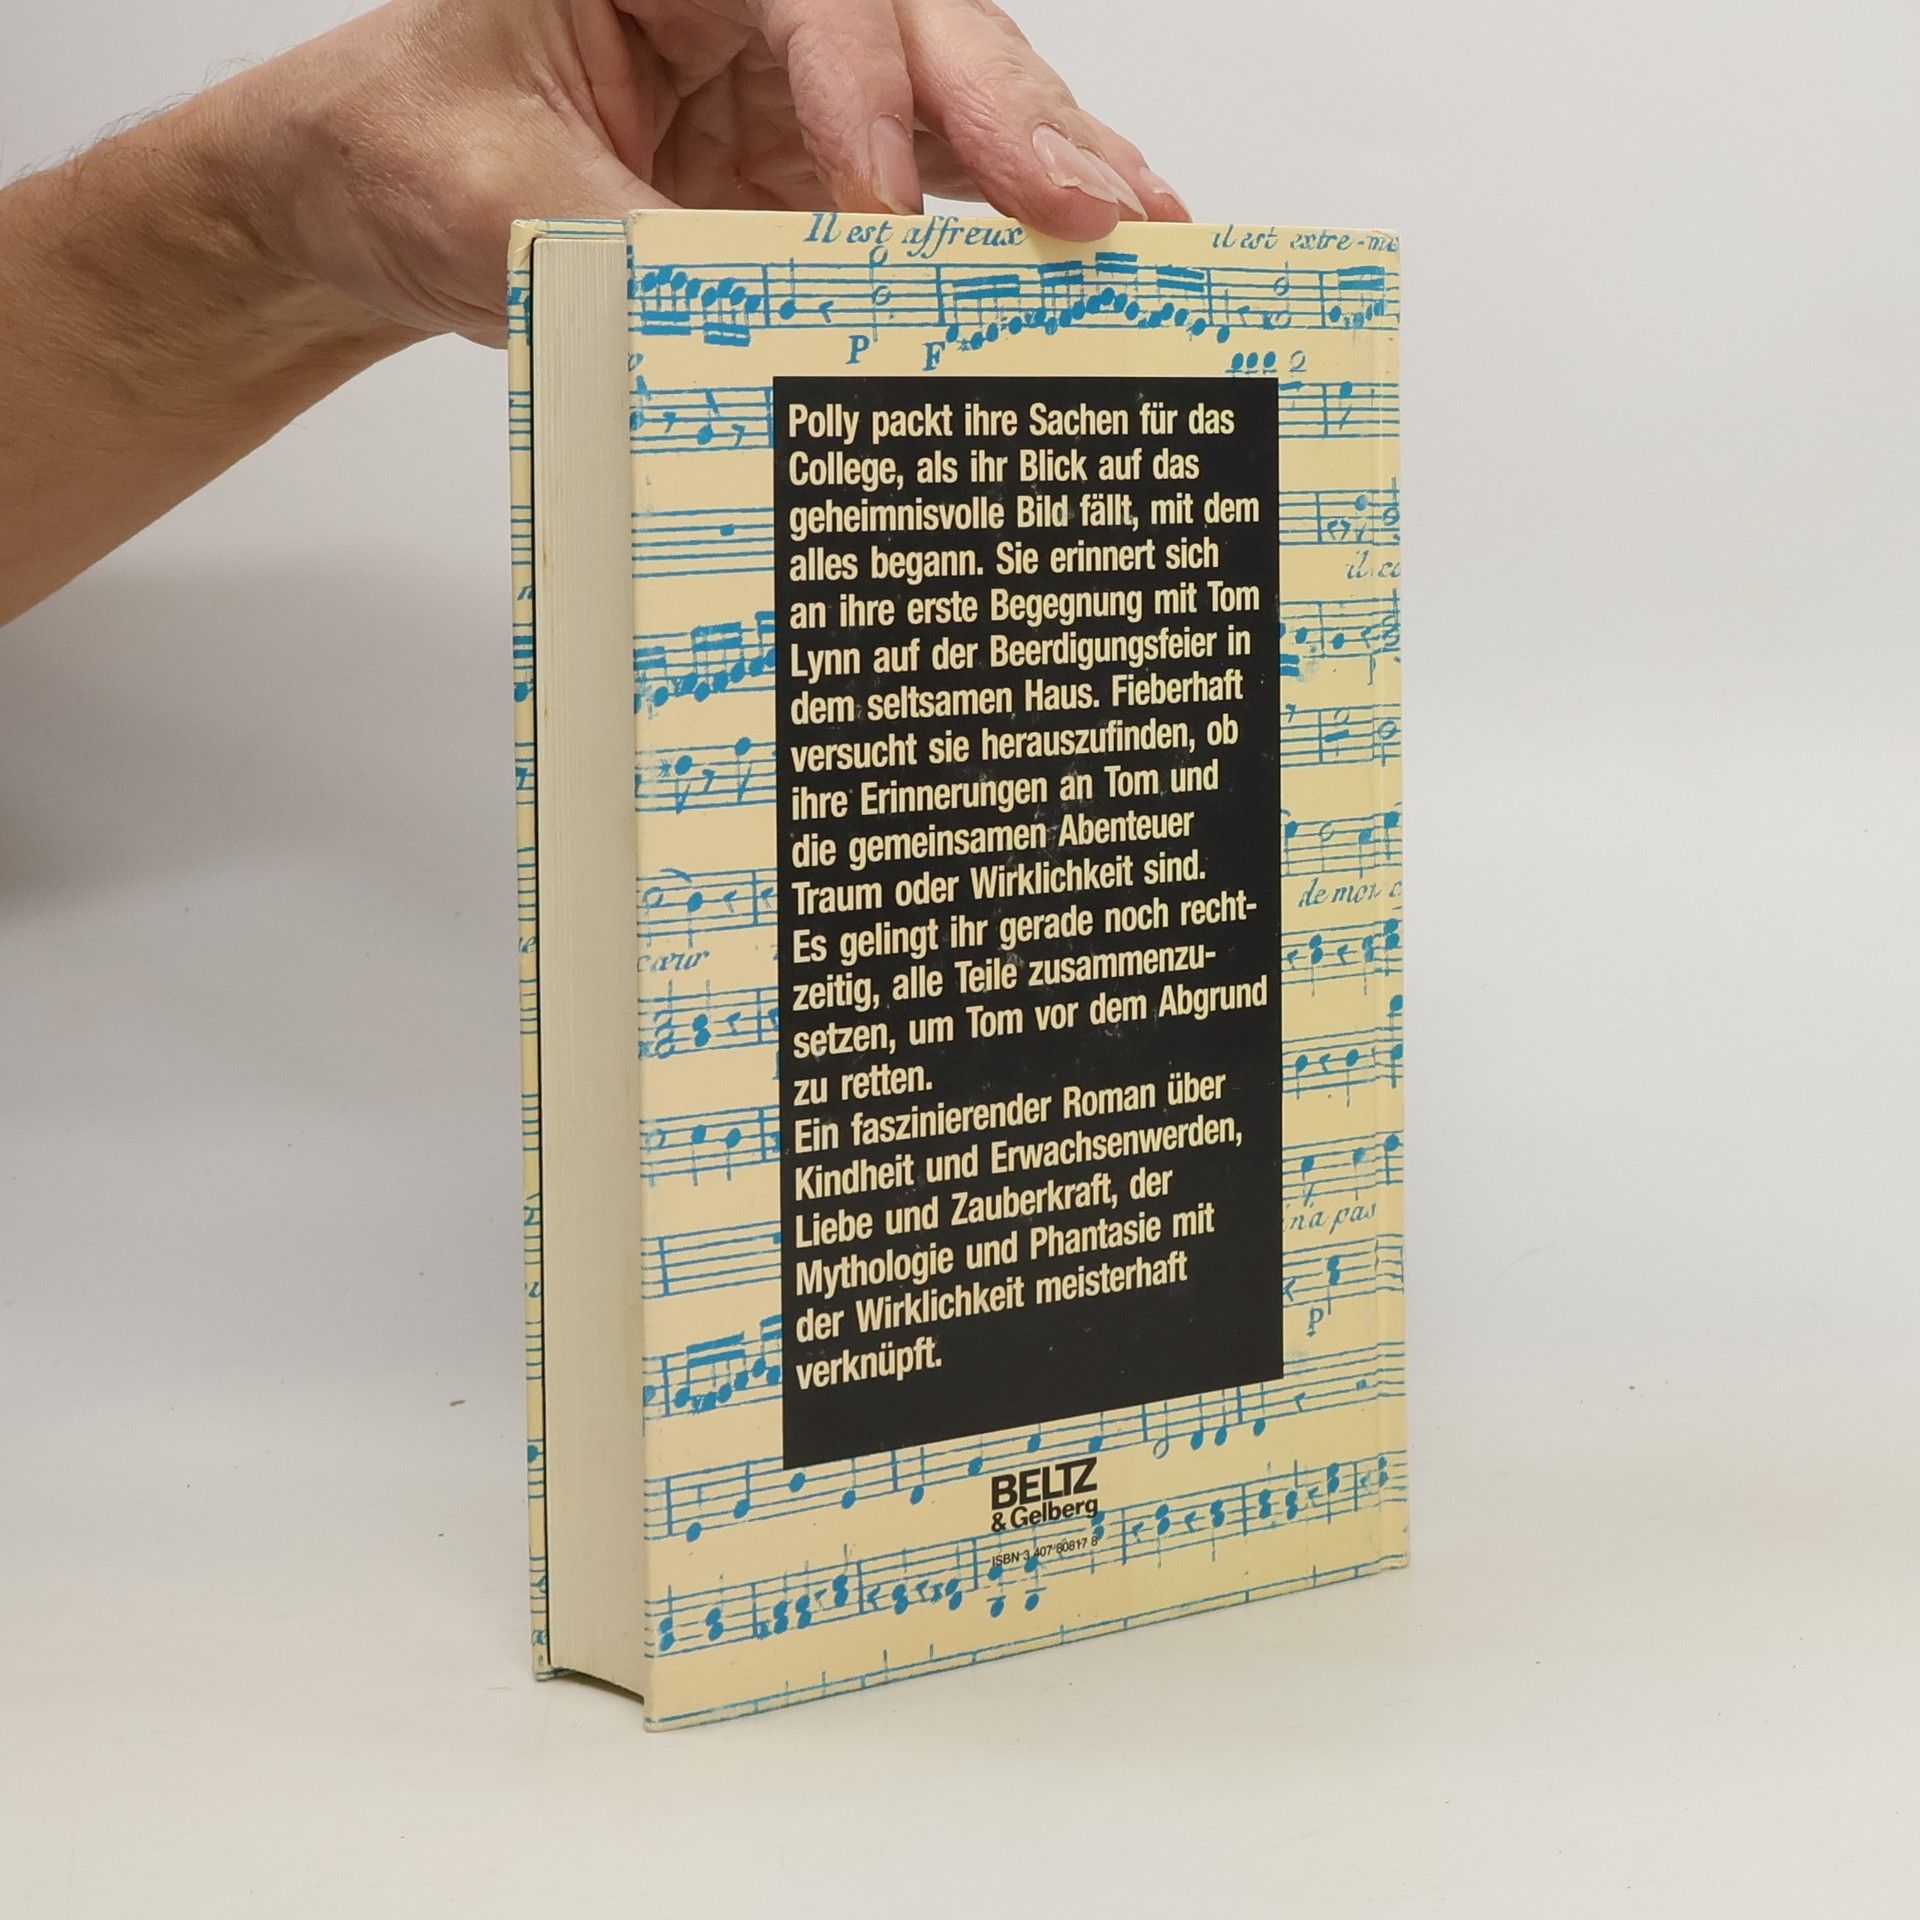 Il est affreux
il est extre-me
P
F
Polly packt ihre Sachen für das
College, als ihr Blick auf das
geheimnisvolle Bild fällt, mit dem
alles begann. Sie erinnert sich
an ihre erste Begegnung mit Tom
Lynn auf der Beerdigungsfeier in
dem seltsamen Haus. Fieberhaft
versucht sie herauszufinden, ob
ihre Erinnerungen an Tom und
die gemeinsamen Abenteuer
Traum oder Wirklichkeit sind.
Es gelingt ihr gerade noch recht-
zeitig, alle Teile zusammenzu-
setzen, um Tom vor dem Abgrund
zu retten.
Ein faszinierender Roman über
Kindheit und Erwachsenwerden,
Liebe und Zauberkraft, der
Mythologie und Phantasie mit
der Wirklichkeit meisterhaft
verknüpft.
il co
de moi c
cœur
n'a pas
P
BELTZ
& Gelberg
ISBN 3 407 80817 8